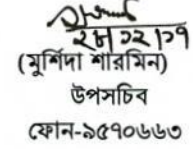 ২৮।১২।১৭
(মুর্শিদা শারমিন)
উপসচিব
ফোন-৯৫৭০৬৬৩